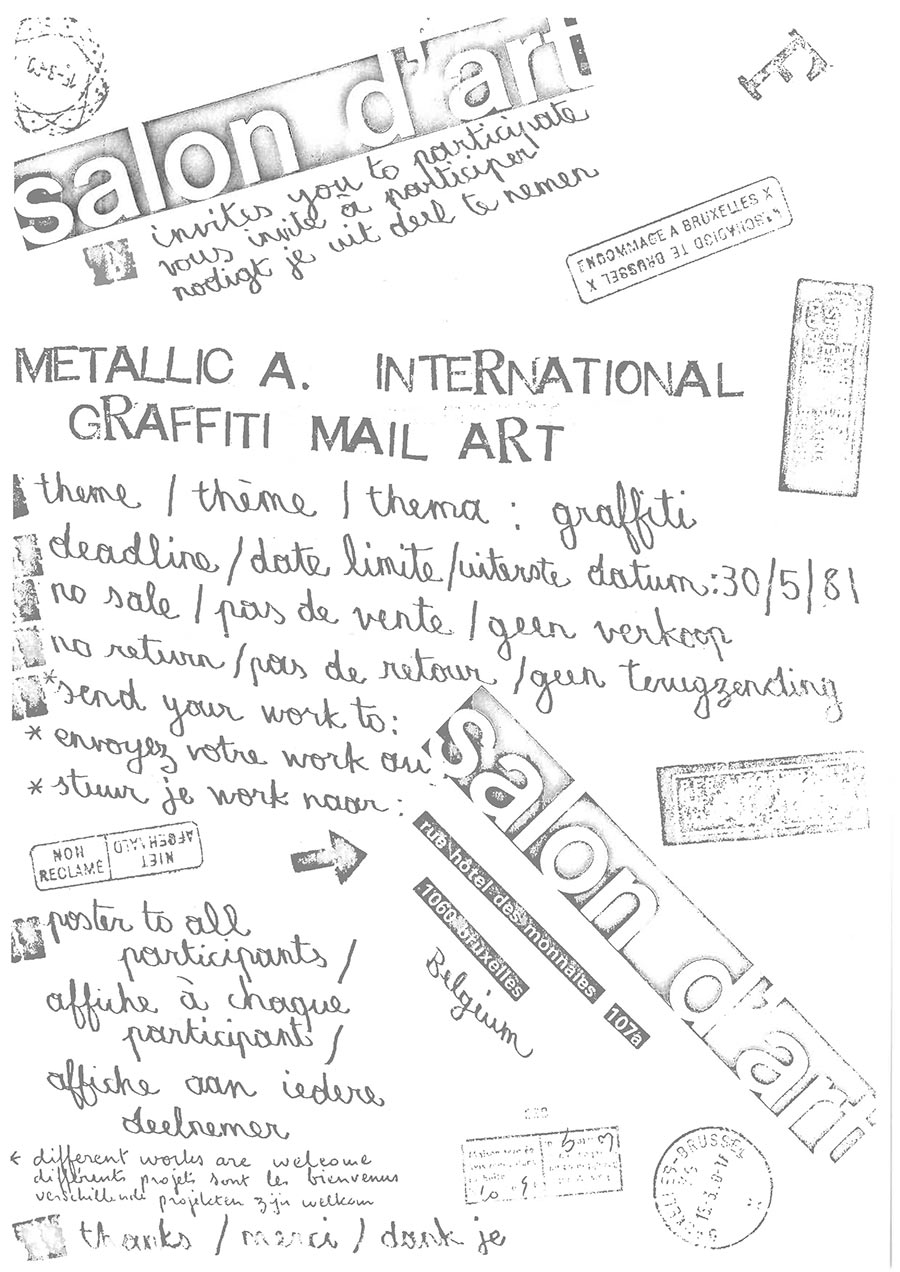 salon d'art
invites you to participate
vous invite à participer
nodigt je uit deel te nemen
E
ENGOMMAGE A BRUXELLES X
METALLIC A. INTERNATIONAL
GRAFFITI MAIL ART
theme / thème / thema : graffiti
deadline / date limite / uiterste datum: 30/5/81
no sale / pas de vente / geen verkoop
no return / pas de retour / geen terugzending
*send your work to:
* envoyez votre work au:
* stuur je work naar:
salon d'art
rue hôtel des monnaies 107a
1060 bruxelles
Belgium
NON
RECLAME
NIET
AFGEHAALD
poster to all
participants /
affiche à chaque
participant /
affiche aan iedere
deelnemer
different works are welcome
différents projets sont les bienvenus
verschillende projekten zijn welkom
BRUXELLES-BRUSSEL
thanks / merci / dank je